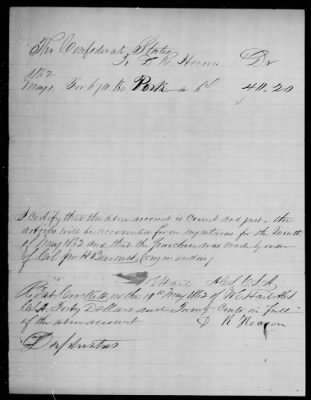 The Confederate States
To D. K. Dr
1862
May 9 For 670 lbs Pork a 6¢ 40.20
I certify that the above account is correct and just, the
articles will be accounted for on my returns for the Month
of May 1862 and that the purchase was made by order
of Col Jno H commanding
A.C.S. C.S.A.
Rec'd at on the 10th May 1862 of W. Hail
C.S.A. Forty Dollars and Twenty Cents in full
of the above account
D. K.